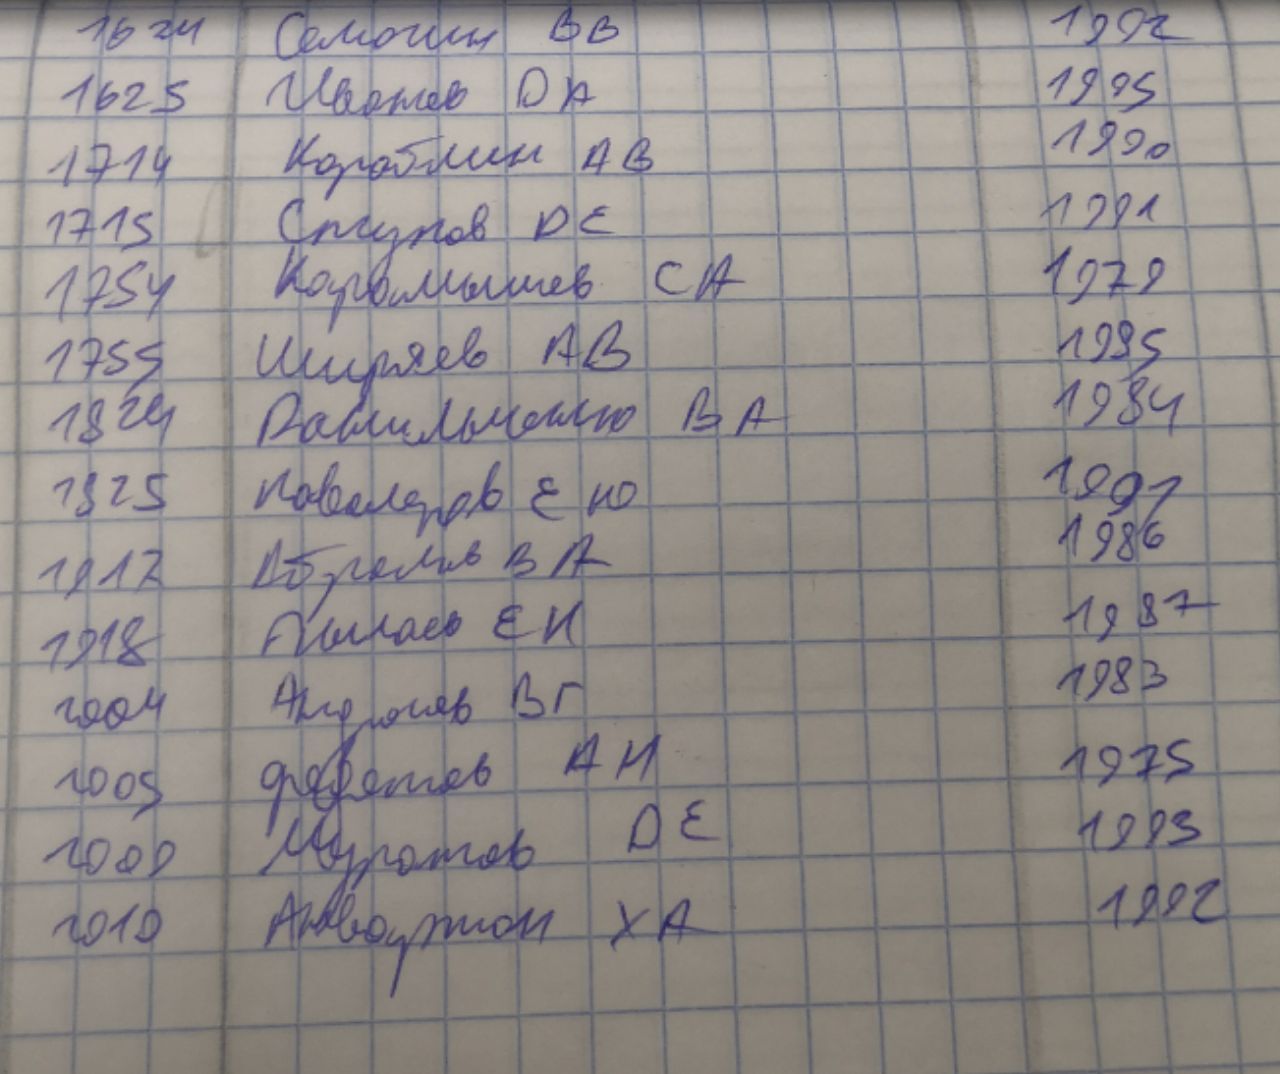 1624 Семочин ВВ 1992
1625 Иванов DА 1995
1714 Кораблин АВ 1990
1715 Ступов DЕ 1991
1754 Карамышев СА 1979
1755 Ширяев АВ 1995
1824 Данильченко ВА 1984
1825 Кавалеров Е Ю 1991
1917 Абрамов ВА 1986
1918 ЕИ 1987
2004 Андросов ВГ 1983
2005 Федотов АН 1975
2009 Муратов DЕ 1993
2010 ХА 1992